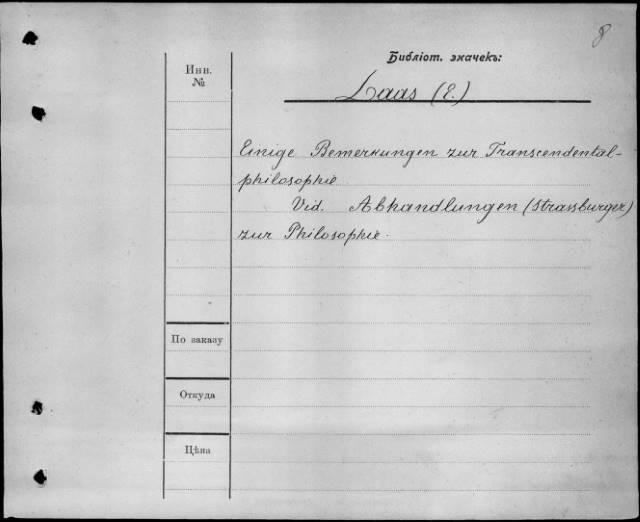 8
Библіот. значекъ:
Инв.
№
Laas (E.)
Einige Bemerkungen zur Transcendental-
philosophie.
Vid. Abhandlungen (Strassburger)
zur Philosophie.
По заказу
Откуда
Цѣна